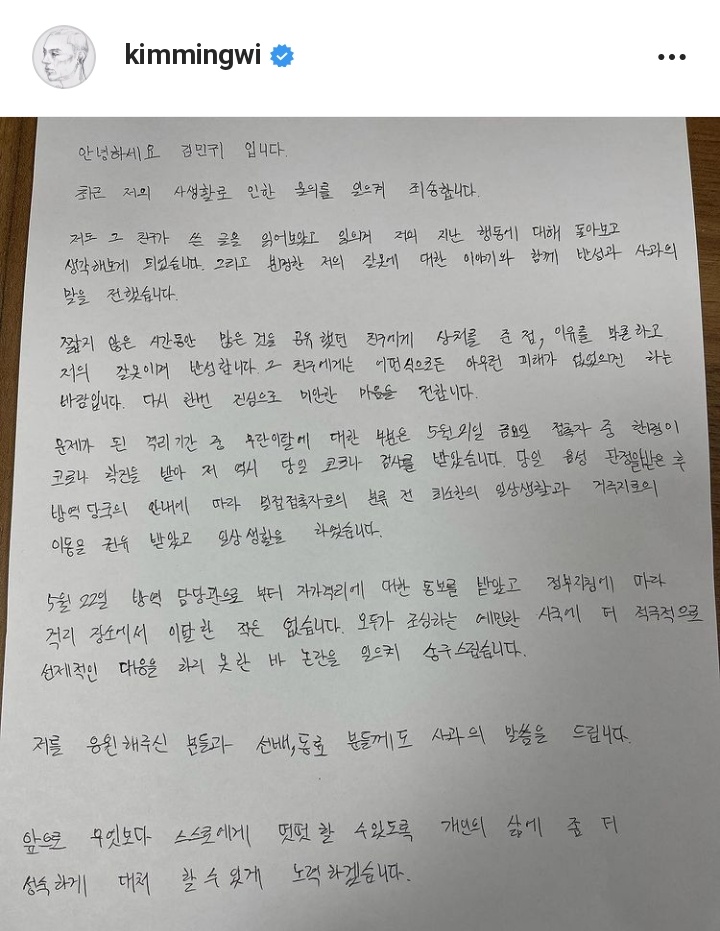 kimmingwi
안녕하세요 김민귀 입니다.
최근 저의 사생활로 인한 물의를 일으켜 죄송합니다.
저도 그 친구가 쓴 글을 읽어보았고 읽으며 저의 지난 행동에 대해 돌아보고
생각해보게 되었습니다. 그리고 분명한 저의 잘못에 대한 이야기와 함께 반성과 사과의
말을 전했습니다.
짧지 않은 시간동안 많은 것을 공유 했던 친구에게 상처를 준 점, 이유를 막론하고
저의 잘못이며 반성합니다. 그 친구에게는 어떤식으로든 아무런 피해가 없었으면 하는
바람입니다. 다시 한번 진심으로 미안한 마음을 전합니다.
문제가 된 격리기간 중 무단이탈에 대한 부분은 5월 21일 금요일 접촉자 중 한명이
코로나 확진을 받아 저 역시 당일 코로나 검사를 받았습니다. 당일 음성 판정 받은 후
방역 당국의 안내에 따라 밀접접촉자로의 분류 전 최소한의 일상생활과 거주지로의
이동을 권유 받았고 일상 생활을 하였습니다.
5월 22일 방역 담당관으로 부터 자가격리에 대한 통보를 받았고 정부지침에 따라
격리 장소에서 이탈한 적은 없습니다. 모두가 조심하는 예민한 시국에 더 적극적으로
선제적인 대응을 하지 못한 바 논란을 일으켜 송구스럽습니다.
저를 응원해주신 분들과 선배, 동료 분들께도 사과의 말씀을 드립니다.
앞으로 무엇보다 스스로에게 떳떳할 수있도록 개인의 삶에 좀 더
성숙하게 대처 할 수 있게 노력하겠습니다.